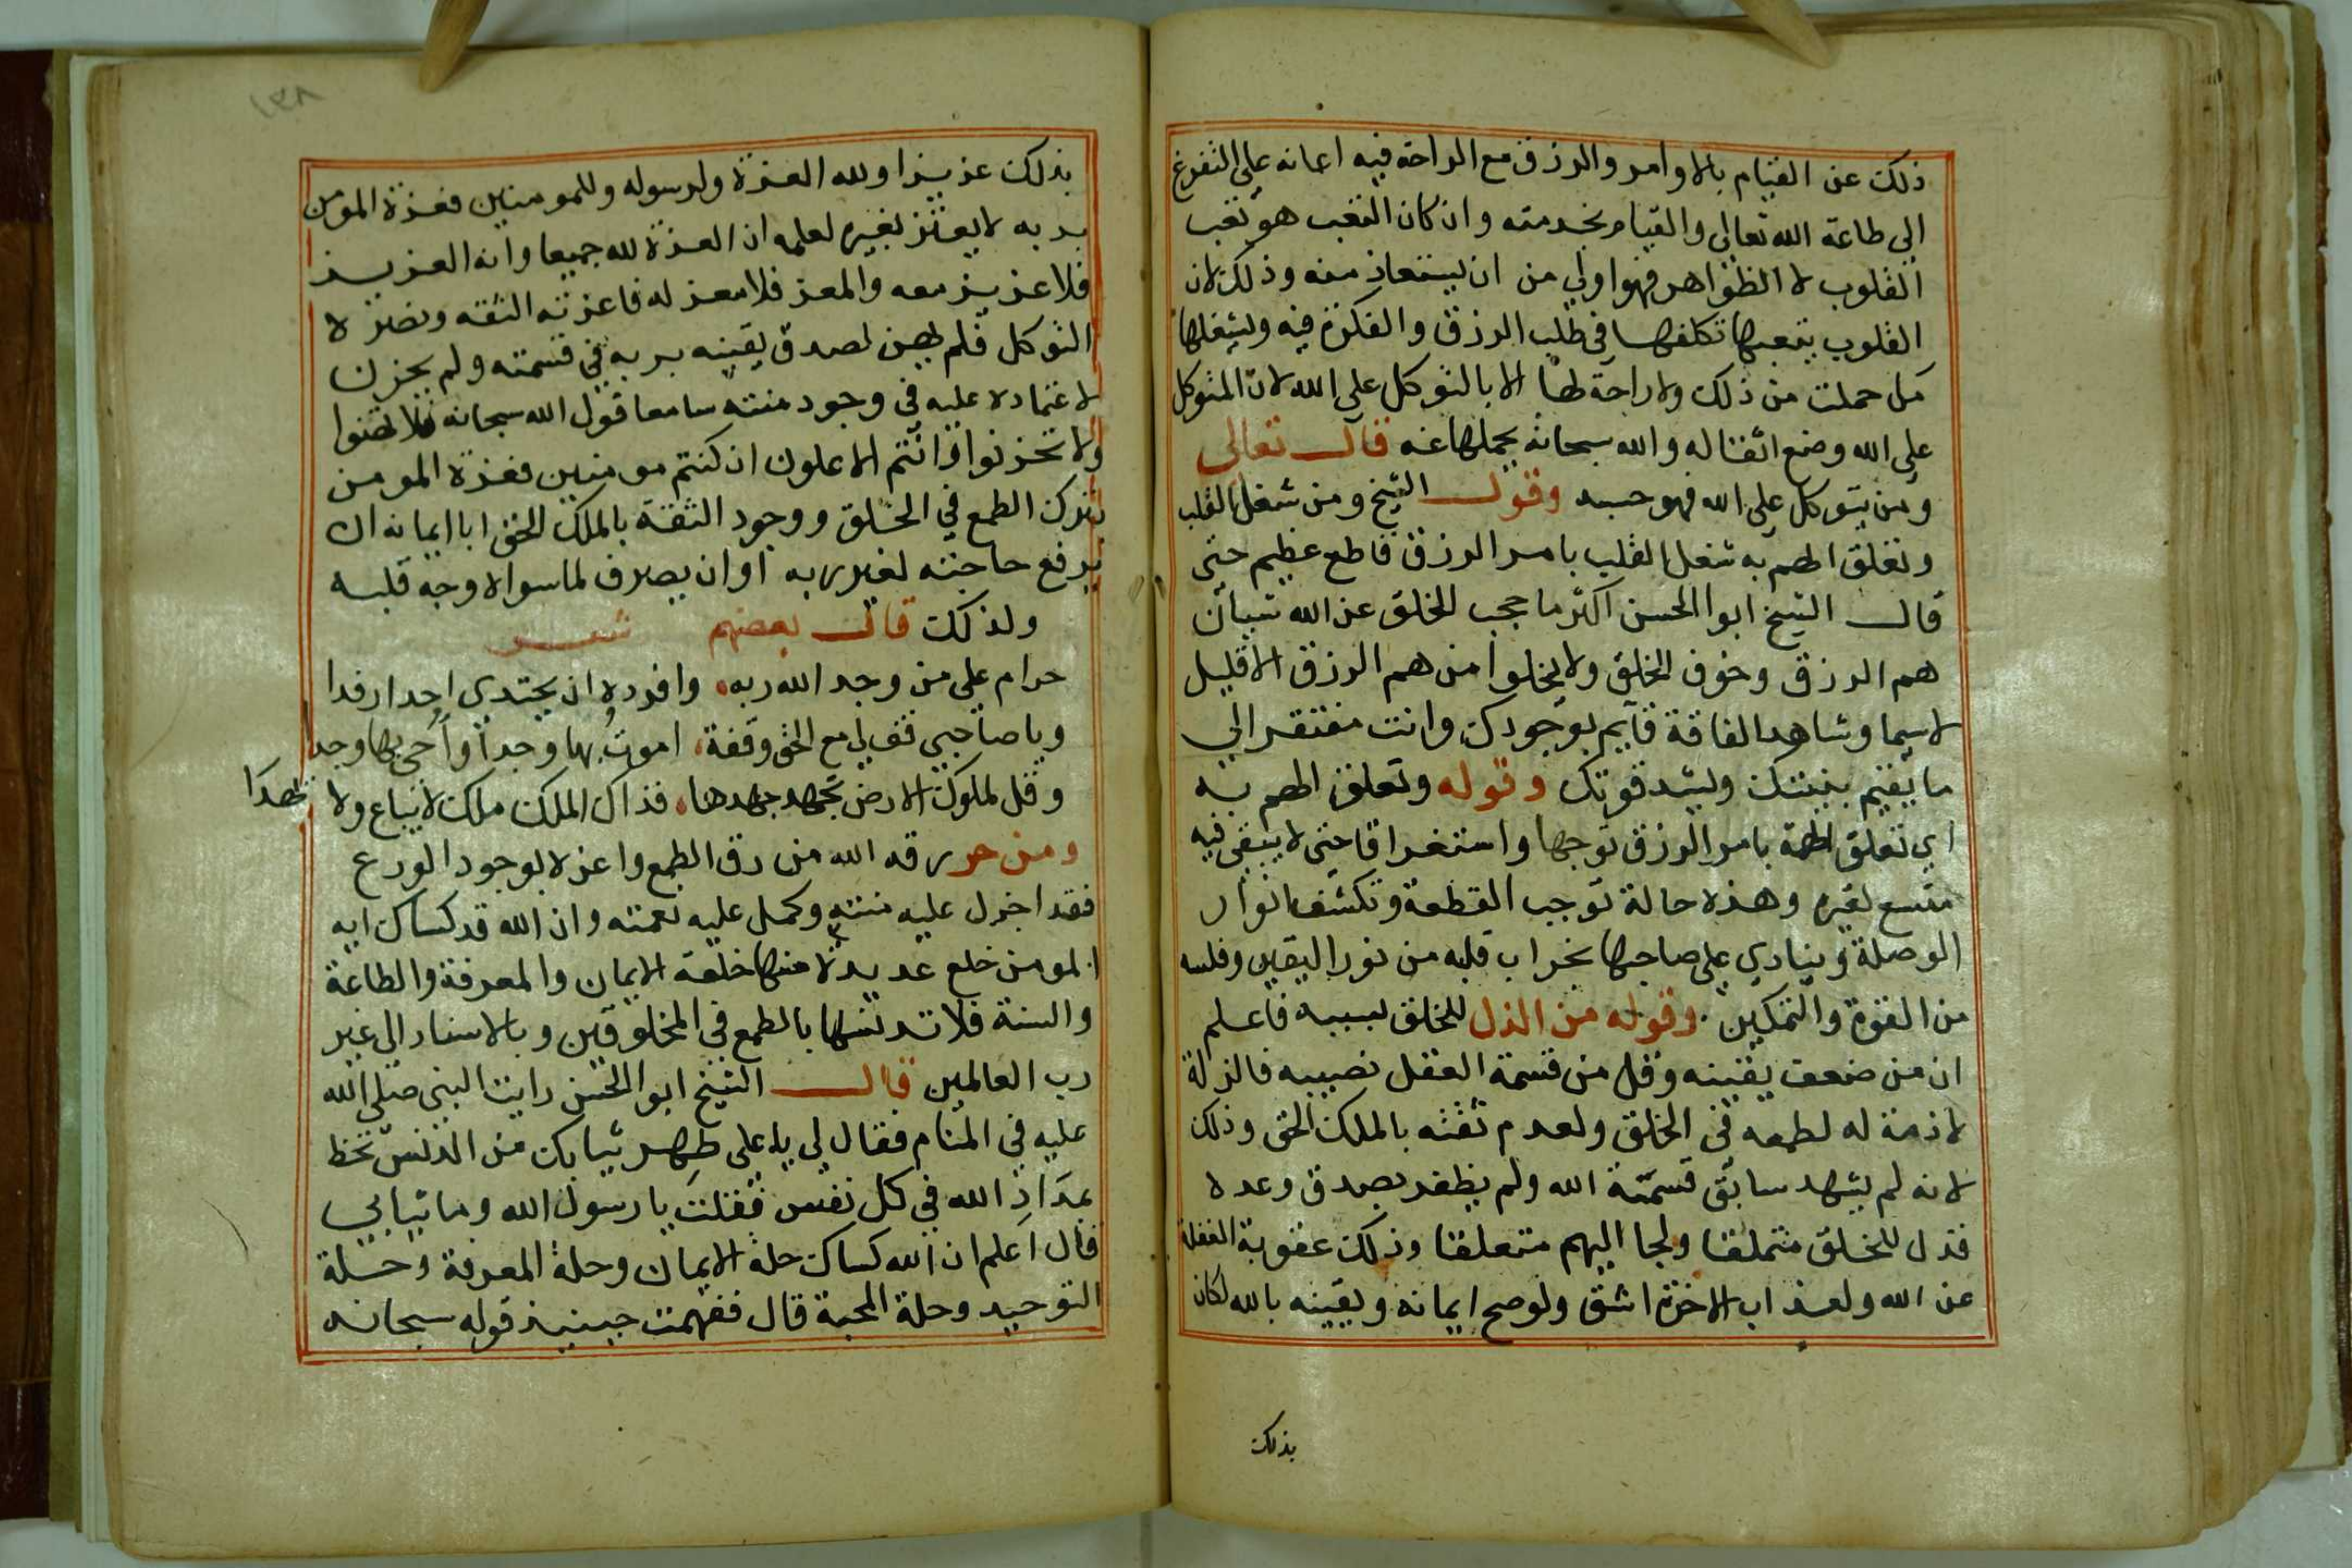 ذلك عن القيام بالاوامر والرزق مع الراحة فيه اعانه على التفرغ
الى طاعة الله تعالى والقيام بخدمته وان كان التعب هو تعب
القلوب لا الظواهر فهو اولى من ان يستعاذ منه وذلك لان
القلوب يتعبها تكلفها في طلب الرزق والفكرة فيه ويثقلها
كل حملت من ذلك ولا راحة لها الا بالتوكل على الله لان المتوكل
على الله وضع اثقاله والله سبحانه يحملها عنه قال تعالى
ومن يتوكل على الله فهو حسبه وقول الشيخ ومن شغل القلب
وتعلق الهم به شغل القلب بامر الرزق قاطع عظيم حتى
قال الشيخ ابوا الحسن اكثر ما حجب الخلق عن الله شيان
هم الرزق وخوف الخلق ولا يخلوا من هم الرزق الا قليل
لا سيما وشاهد الفاقة قايم بوجودك وانت مفتقر الى
ما يقيم بنيتك ويشد قوتك وقوله وتعلق الهم به
اي تعلق الهمة بامر الرزق توجها واستغراقا حتى لا يبقى فيه
متسع لغيره وهذه حالة توجب القطعة وتكشف انوار
الوصلة وينادي على صاحبها بخراب قلبه من نور اليقين وفلسه
من القوة والتمكين. وقوله من الذل للخلق بسببه فاعلم
ان من ضعف يقينه وقل من قسمة العقل نصيبه فالذلة
لازمة له لطمعه في الخلق ولعدم ثقته بالملك الحق وذلك
لانه لم يشهد سابق قسمة الله ولم يظفر بصدق وعده
فذل للخلق متملقا ولجا اليهم متعلقا وذلك عقوبة الغفلة
عن الله ولعذاب الاخرة اشق ولو صح ايمانه ويقينه بالله لكان
بذلك
١٣٨
بذلك عزيزا ولله العزة ولرسوله وللمومنين فعزة المومن
بربه لا يعتز بغيره لعلمه ان العزة لله جميعا وانه العزيز
فلا عزيز معه والمعز فلا معز له فاعزته الثقة ونصره
التوكل فلم يهن لصدق يقينه بربه في قسمته ولم يحزن
لاعتماده عليه في وجود منته سامعا قول الله سبحانه فلا تهنوا
ولا تحزنوا وانتم الاعلون ان كنتم مومنين فعزة المومن
بترك الطمع في الخلق ووجود الثقة بالملك الحق ابا ايمانه ان
يرفع حاجته لغير ربه او ان يصرف لما سواه وجه قلبه
ولذلك قال بعضهم شعر
حرام على من وحد الله ربه، وافرده ان يجتدي احدا رفدا
ويا صاحبي قف لي مع الحق وقفة، اموت بها وجدا واحي بها وجدا
وقل لملوك الارض تجهد جهدها، فذاك الملك ملك لا يباع ولا يهدا
ومن حرر رقه الله من رق الطمع واعزه بوجود الورع
فقد اجزل عليه منته وكمل عليه نعمته وان الله قد كساك ايه
المومن خلع عديدة منها خلعة الايمان والمعرفة والطاعة
والسنة فلا تدنسها بالطمع في المخلوقين وبالاستناد الى غير
رب العالمين قال الشيخ ابو الحسن رايت النبي صلى الله
عليه في المنام فقال لي يا على طهر ثيابك من الدنس تحظ
بمداد الله في كل نفس فقلت يا رسول الله وما ثيابي
قال اعلم ان الله كساك حلة الايمان وحلة المعرفة وحلة
التوحيد وحلة المحبة قال ففهمت حينيذ قوله سبحانه